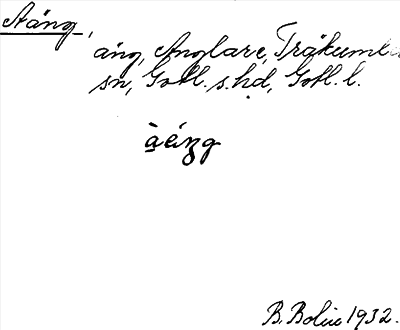 Aäng,
äng, Anglare, Träkumla
sn, Gotl. s. hd, Gotl. l.
àéng
B. Bolin 1932.